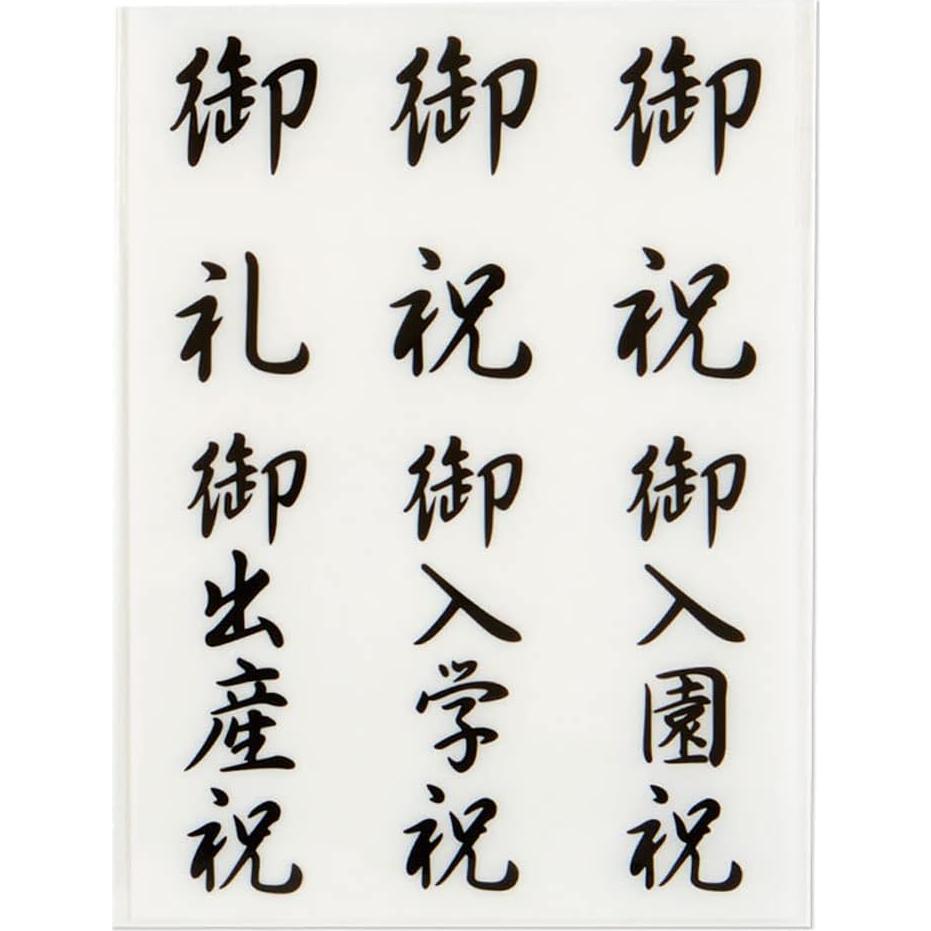 御祝
御祝
御礼
御入園祝
御入学祝
御出産祝